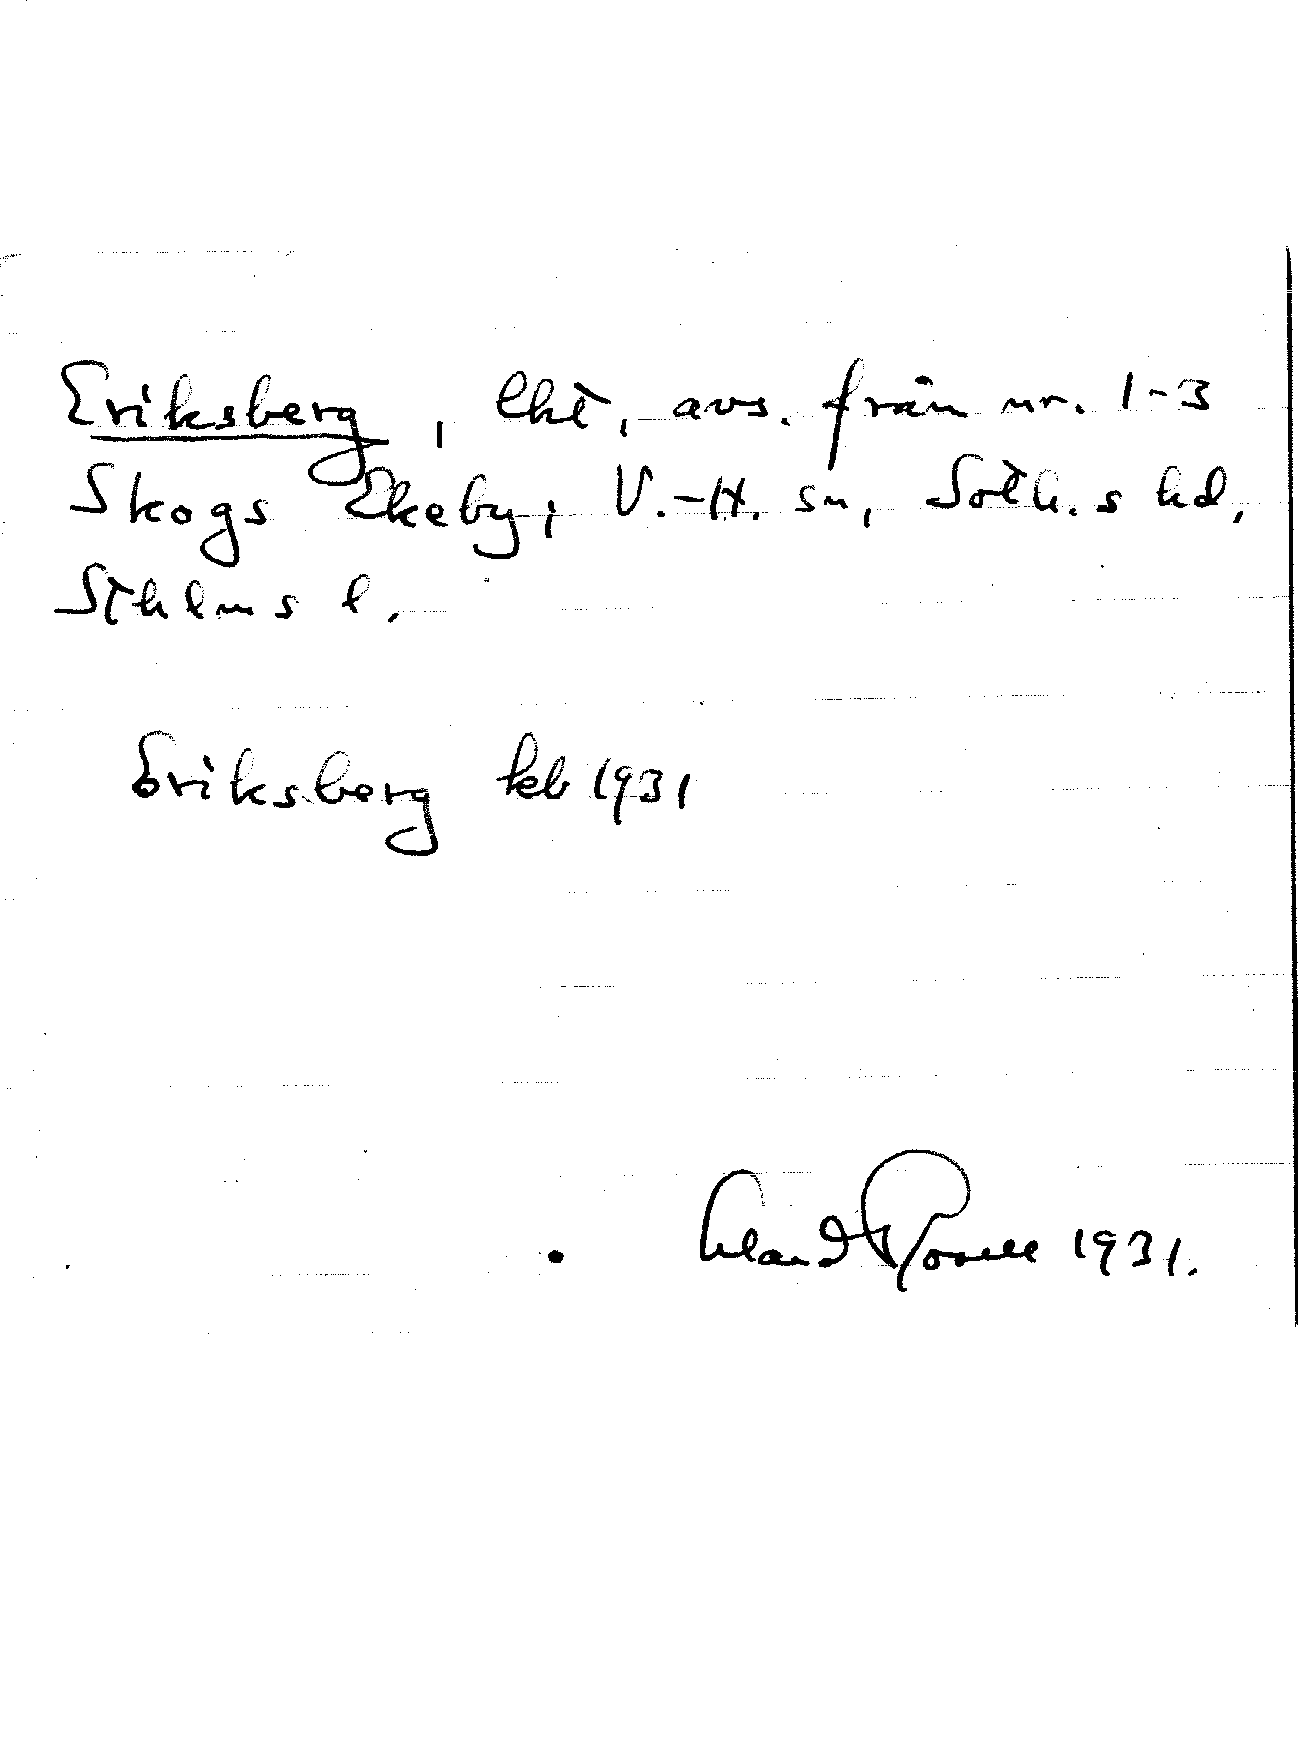 Eriksberg, lht, avs. från nr. 1-3
Skogs Ekeby, V.-H. sn, Soth.s hd,
Sthlms l.
Eriksberg kb 1931
Roland 1931.